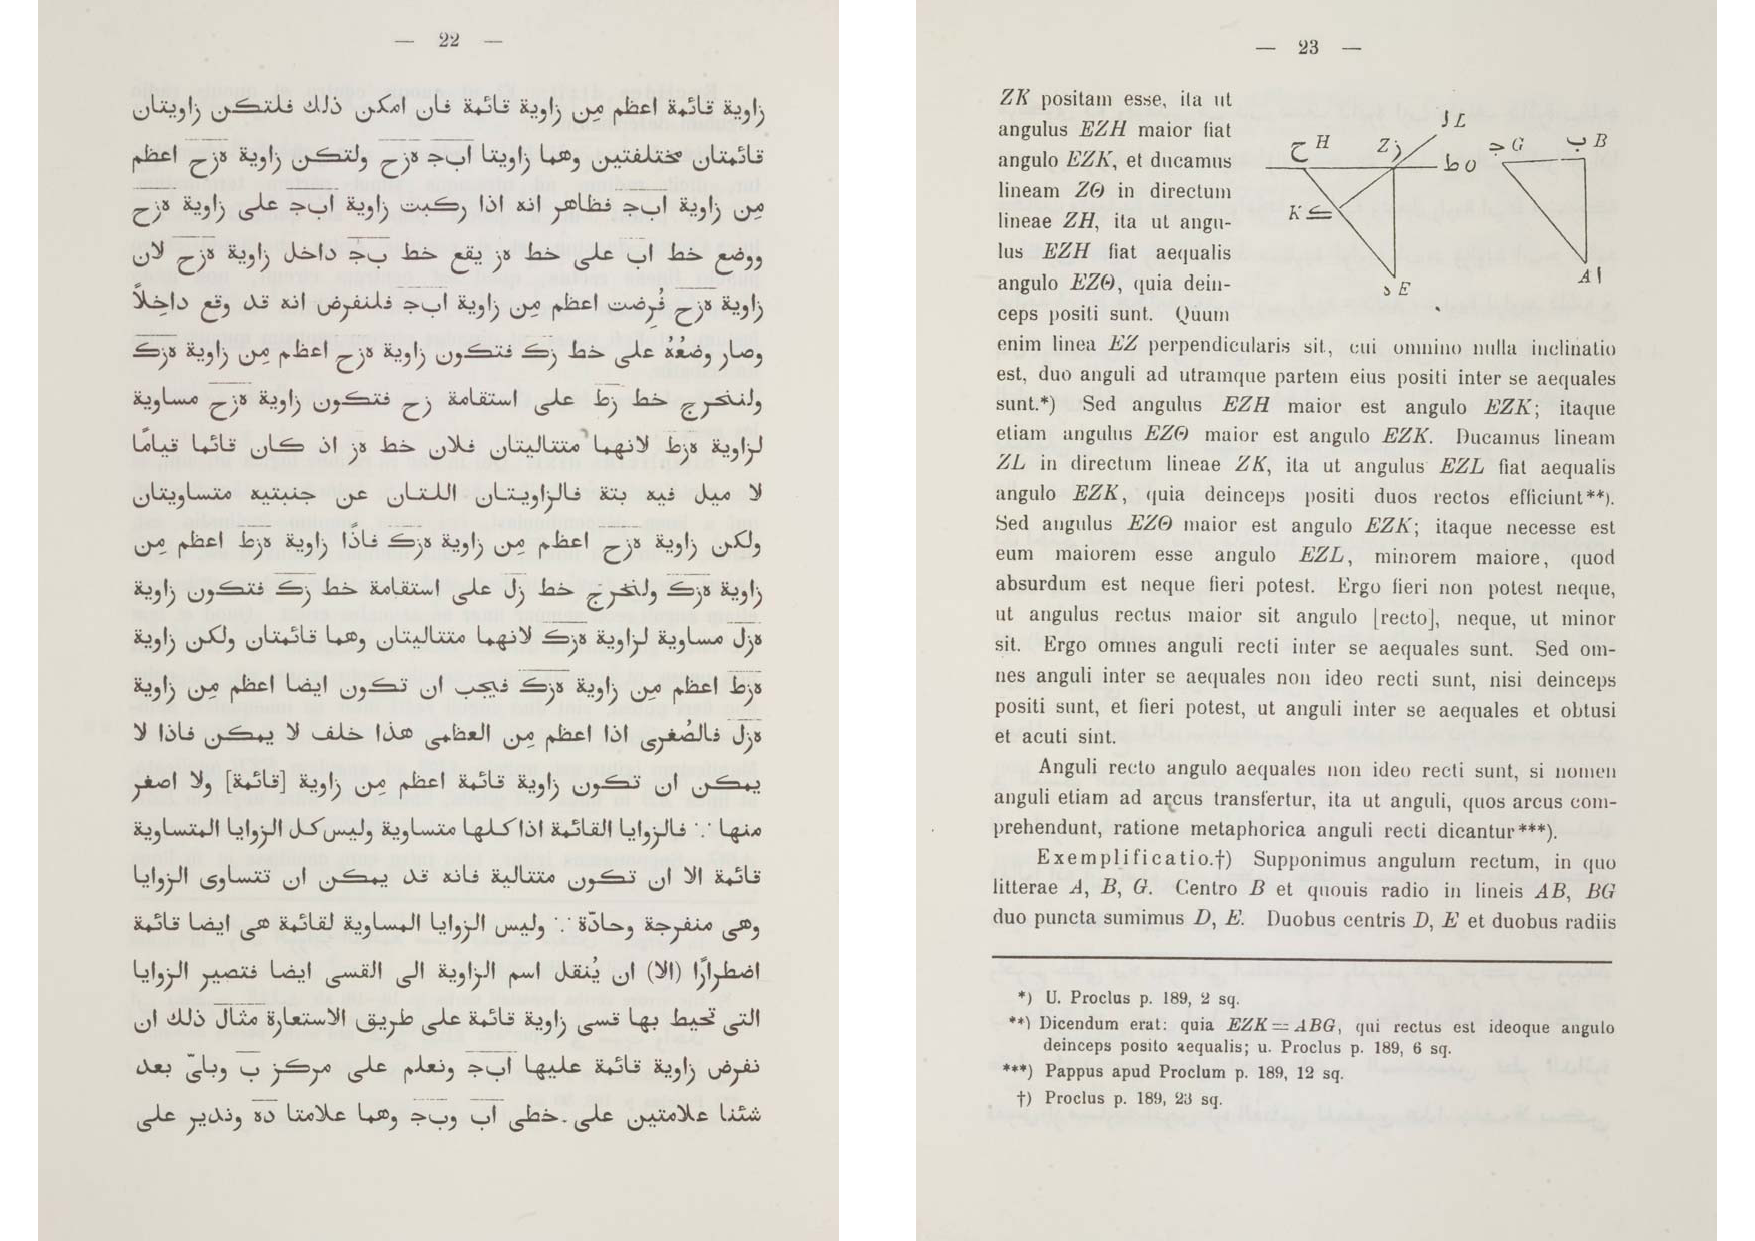 — 22 —
زاوية قائمة اعظم مِن زاوية قائمة فان امكن ذلك فلتكن زاويتان
قائمتان مختلفتين وهما زاويتا ابج هزح ولتكن زاوية هزح اعظم
مِن زاوية ابج فظاهر انه اذا ركبت زاوية ابج على زاوية هزح
ووضع خط اب على خط هز يقع خط بج داخل زاوية هزح لان
زاوية هزح فُرِضت اعظم مِن زاوية ابج فلنفرض انه قد وقع داخِلاً
وصار وضعُهُ على خط زك فتكون زاوية هزح اعظم مِن زاوية هزك
ولنخرج خط زط على استقامة زح فتكون زاوية هزح مساوية
لزاوية هزط لانهما متتاليتان فلان خط هز اذ كان قائما قيامًا
لا ميل فيه بتة فالزاويتان اللتان عن جنبتيه متساويتان
ولكن زاوية هزح اعظم مِن زاوية هزك فاذًا زاوية هزط اعظم مِن
زاوية هزك ولنخرج خط زل على استقامة خط زك فتكون زاوية
هزل مساوية لزاوية هزك لانهما متتاليتان وهما قائمتان ولكن زاوية
هزط اعظم مِن زاوية هزك فيجب ان تكون ايضا اعظم مِن زاوية
هزل فالصُغرى اذا اعظم مِن العظمى هذا خلف لا يمكن فاذا لا
يمكن ان تكون زاوية قائمة اعظم مِن زاوية [قائمة] ولا اصغر
منها ∵ فالزوايا القائمة اذا كلها متساوية وليس كل الزوايا المتساوية
قائمة الا ان تكون متتالية فانه قد يمكن ان تتساوى الزوايا
وهى منفرجة وحادّة ∵ وليس الزوايا المساوية لقائمة هى ايضا قائمة
اضطرارًا (الا) ان يُنقل اسم الزاوية الى القسى ايضا فتصير الزوايا
التى تحيط بها قسى زاوية قائمة على طريق الاستعارة مثال ذلك ان
نفرض زاوية قائمة عليها ابج ونعلم على مركز ب وباىّ بعد
شئنا علامتين على خطى اب وبج وهما علامتا ده وندير على
— 23 —
ZK positam esse, ita ut
angulus EZH maior fiat
angulo EZK, et ducamus
lineam ZΘ in directum
lineae ZH, ita ut angu-
lus EZH fiat aequalis
angulo EZΘ, quia dein-
ceps positi sunt. Quum
ح H
Z ز
ل L
ط Θ
ج G
ب B
K ك
ه E
A ا
enim linea EZ perpendicularis sit, cui omnino nulla inclinatio
est, duo anguli ad utramque partem eius positi inter se aequales
sunt.*) Sed angulus EZH maior est angulo EZK; itaque
etiam angulus EZΘ maior est angulo EZK. Ducamus lineam
ZL in directum lineae ZK, ita ut angulus EZL fiat aequalis
angulo EZK, quia deinceps positi duos rectos efficiunt**).
Sed angulus EZΘ maior est angulo EZK; itaque necesse est
eum maiorem esse angulo EZL, minorem maiore, quod
absurdum est neque fieri potest. Ergo fieri non potest neque,
ut angulus rectus maior sit angulo [recto], neque, ut minor
sit. Ergo omnes anguli recti inter se aequales sunt. Sed om-
nes anguli inter se aequales non ideo recti sunt, nisi deinceps
positi sunt, et fieri potest, ut anguli inter se aequales et obtusi
et acuti sint.
Anguli recto angulo aequales non ideo recti sunt, si nomen
anguli etiam ad arcus transfertur, ita ut anguli, quos arcus com-
prehendunt, ratione metaphorica anguli recti dicantur***).
Exemplificatio.†) Supponimus angulum rectum, in quo
litterae A, B, G. Centro B et quouis radio in lineis AB, BG
duo puncta sumimus D, E. Duobus centris D, E et duobus radiis
*) U. Proclus p. 189, 2 sq.
**) Dicendum erat: quia EZK = ABG, qui rectus est ideoque angulo
deinceps posito aequalis; u. Proclus p. 189, 6 sq.
***) Pappus apud Proclum p. 189, 12 sq.
†) Proclus p. 189, 23 sq.